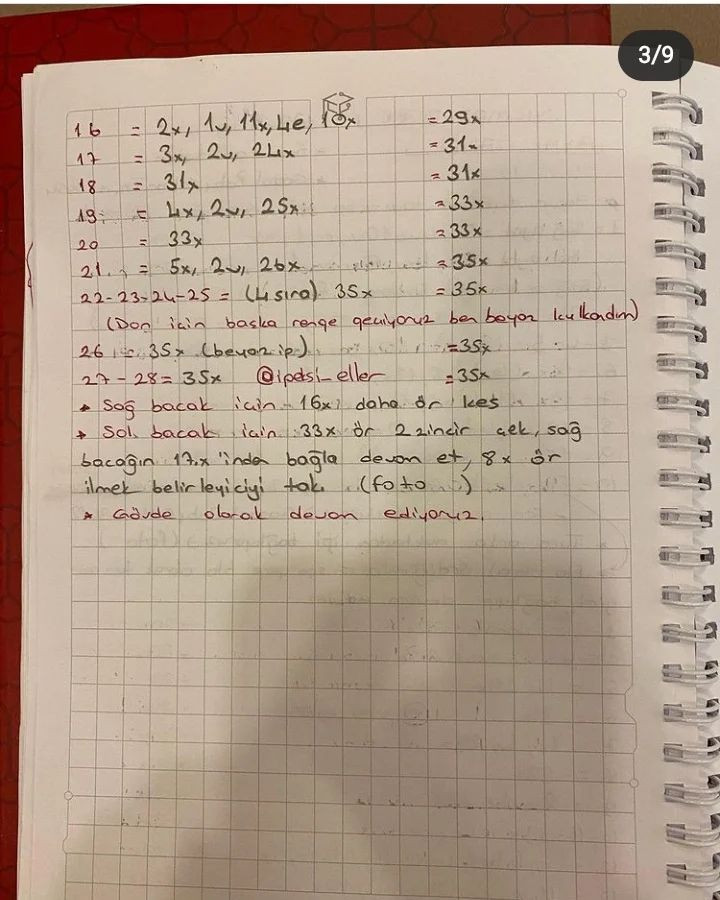 3/9
16 = 2x, 1v, 11x, 4e, 10x = 29x
17 = 3x, 2v, 24x = 31x
18 = 31x = 31x
19 = 4x, 2v, 25x = 33x
20 = 33x = 33x
21 = 5x, 2v, 26x = 35x
22-23-24-25 = (4 sıra) 35x = 35x
(Don için başka renge geçiyoruz ben beyaz kullandım)
26 = 35x (beyaz ip) = 35x
27-28 = 35x @ipeksi_eller = 35x
* Sağ bacak için 16x daha ör kes
* Sol bacak için 33x ör 2 zincir çek, sağ
bacağın 17.x 'inden bağla devam et, 8x ör
ilmek belirleyiciyi tak. (foto )
* Gövde olarak devam ediyoruz.